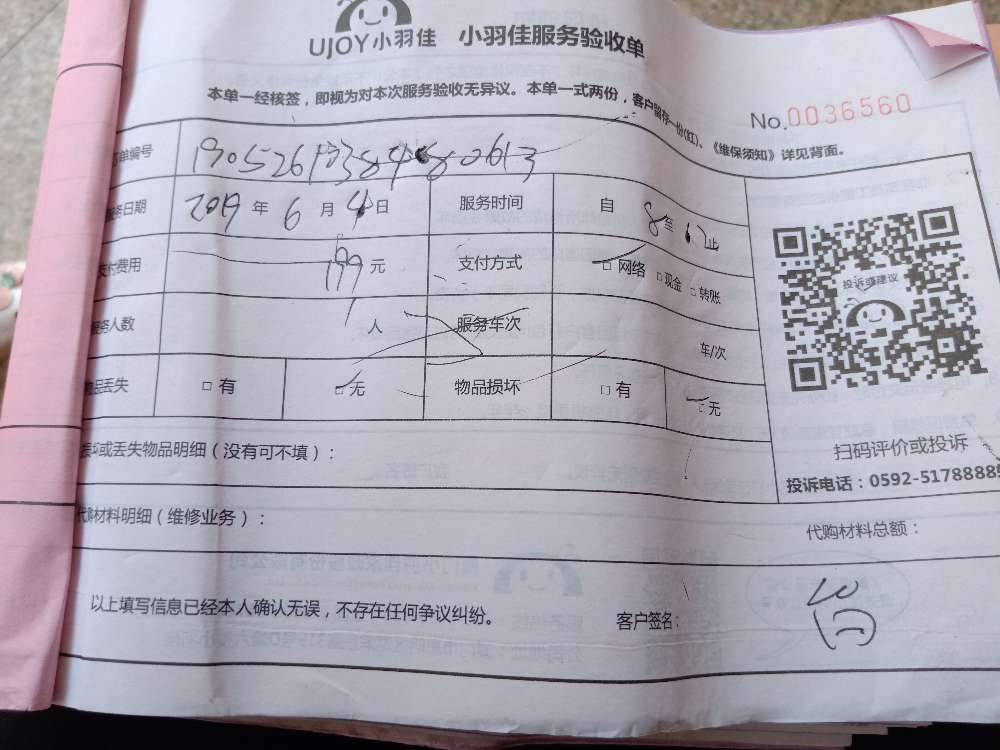 UJOY小羽佳 小羽佳服务验收单
本单一经核签，即视为对本次服务验收无异议。本单一式两份，客户留存一份(红)、《维保须知》详见背面。
No.0036560
订单编号
服务日期 2019 年 6 月 4 日 服务时间 自 8 至 12 止
支付费用 199 元 支付方式 □ 网络 □ 现金 □ 转账
服务人数 1 人 服务车次 车/次
物品丢失 □ 有 □ 无 物品损坏 □ 有 □ 无
投诉或建议
扫码评价或投诉
投诉电话：0592-5178888
损坏或丢失物品明细（没有可不填）：
代购材料明细（维修业务）： 代购材料总额：
以上填写信息已经本人确认无误，不存在任何争议纠纷。 客户签名：